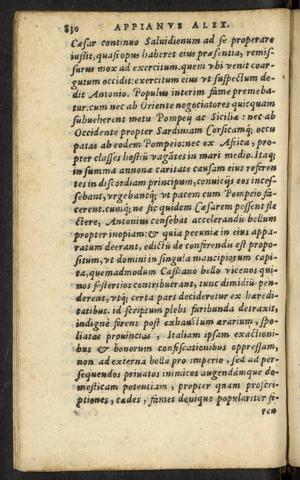 830 APPIANVS ALEX.
Cæsar continuo Saluidienum ad se properare
iussit, quasi opus haberet eius præsentia, remis-
surus mox ad exercitum. quem vbi venit coar-
gutum occidit: exercitum eius vt suspectum de-
dit Antonio. Populus interim fame premeba-
tur: cum nec ab Oriente negociatores quicquam
subueherent metu Pompeij ac Siciliæ: nec ab
Occidente propter Sardiniam Corsicamq; occu
patas ab eodem Pompeio: nec ex Africa, pro-
pter classes hostiū vagātes in mari medio. Itaq;
in summa annonæ caritate causam eius referen
tes in discordiam principum, conuicijs eos inces-
sebant, vrgebantq; vt pacem cum Pompeio fa-
cerent. cumq; ne sic quidem Cæsarem possent fle
ctere, Antonius censebat accelerandū bellum
propter inopiam: & quia pecuniæ in eius appa-
ratum deerant, edictū de conferendis est propo-
situm, vt domini in singula mancipiorum capi-
ta, quemadmodum Cassiano bello vicenos qui-
nos sestertios contribuerant, tunc dimidiū pen-
derent, vtq; certa pars decideretur ex hæredi-
tatibus. id scriptum plebs furibunda detraxit,
indignè ferens post exhaustum ærarium, spo-
liatas prouincias, Italiam ipsam exactioni-
bus & bonorum confiscationibus oppressam,
non ad externa bella pro imperio, sed ad per-
sequendos priuatos inimicos augendamque do-
mesticam potentiam, propter quam proscri-
ptiones, cædes, famēt denique populariter fi-
ren